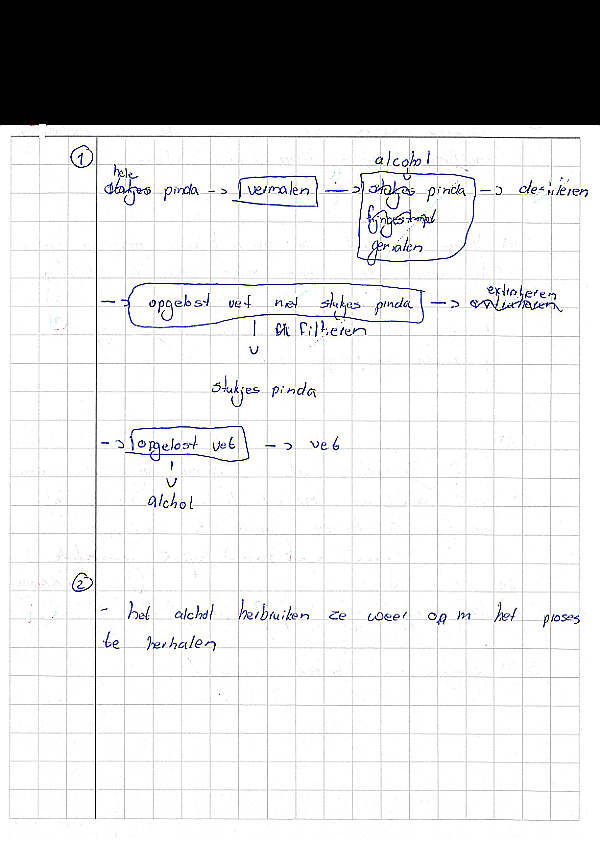 ① alcohol
hele
stukjes pinda -> vermalen -> stukjes pinda -> destileren
fijngestampt
gemalen
-> opgelost vet met stukjes pinda -> extraheren
filtreren
stukjes pinda
-> opgelost vet -> vet
alchol
②
- het alchol herbruiken ze weer op m het proses
te herhalen